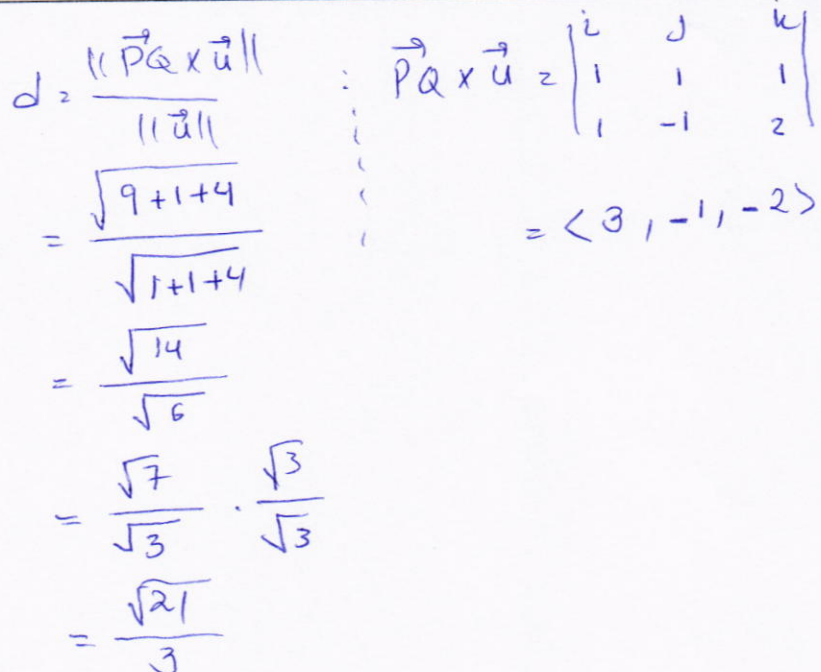 d = ||PQ⃗ × u⃗|| / ||u⃗||
= √(9+1+4) / √(1+1+4)
= √14 / √6
= √7/√3 · √3/√3
= √21 / 3
: PQ⃗ × u⃗ = | i j k |
| 1 1 1 |
| 1 -1 2 |
= <3, -1, -2>